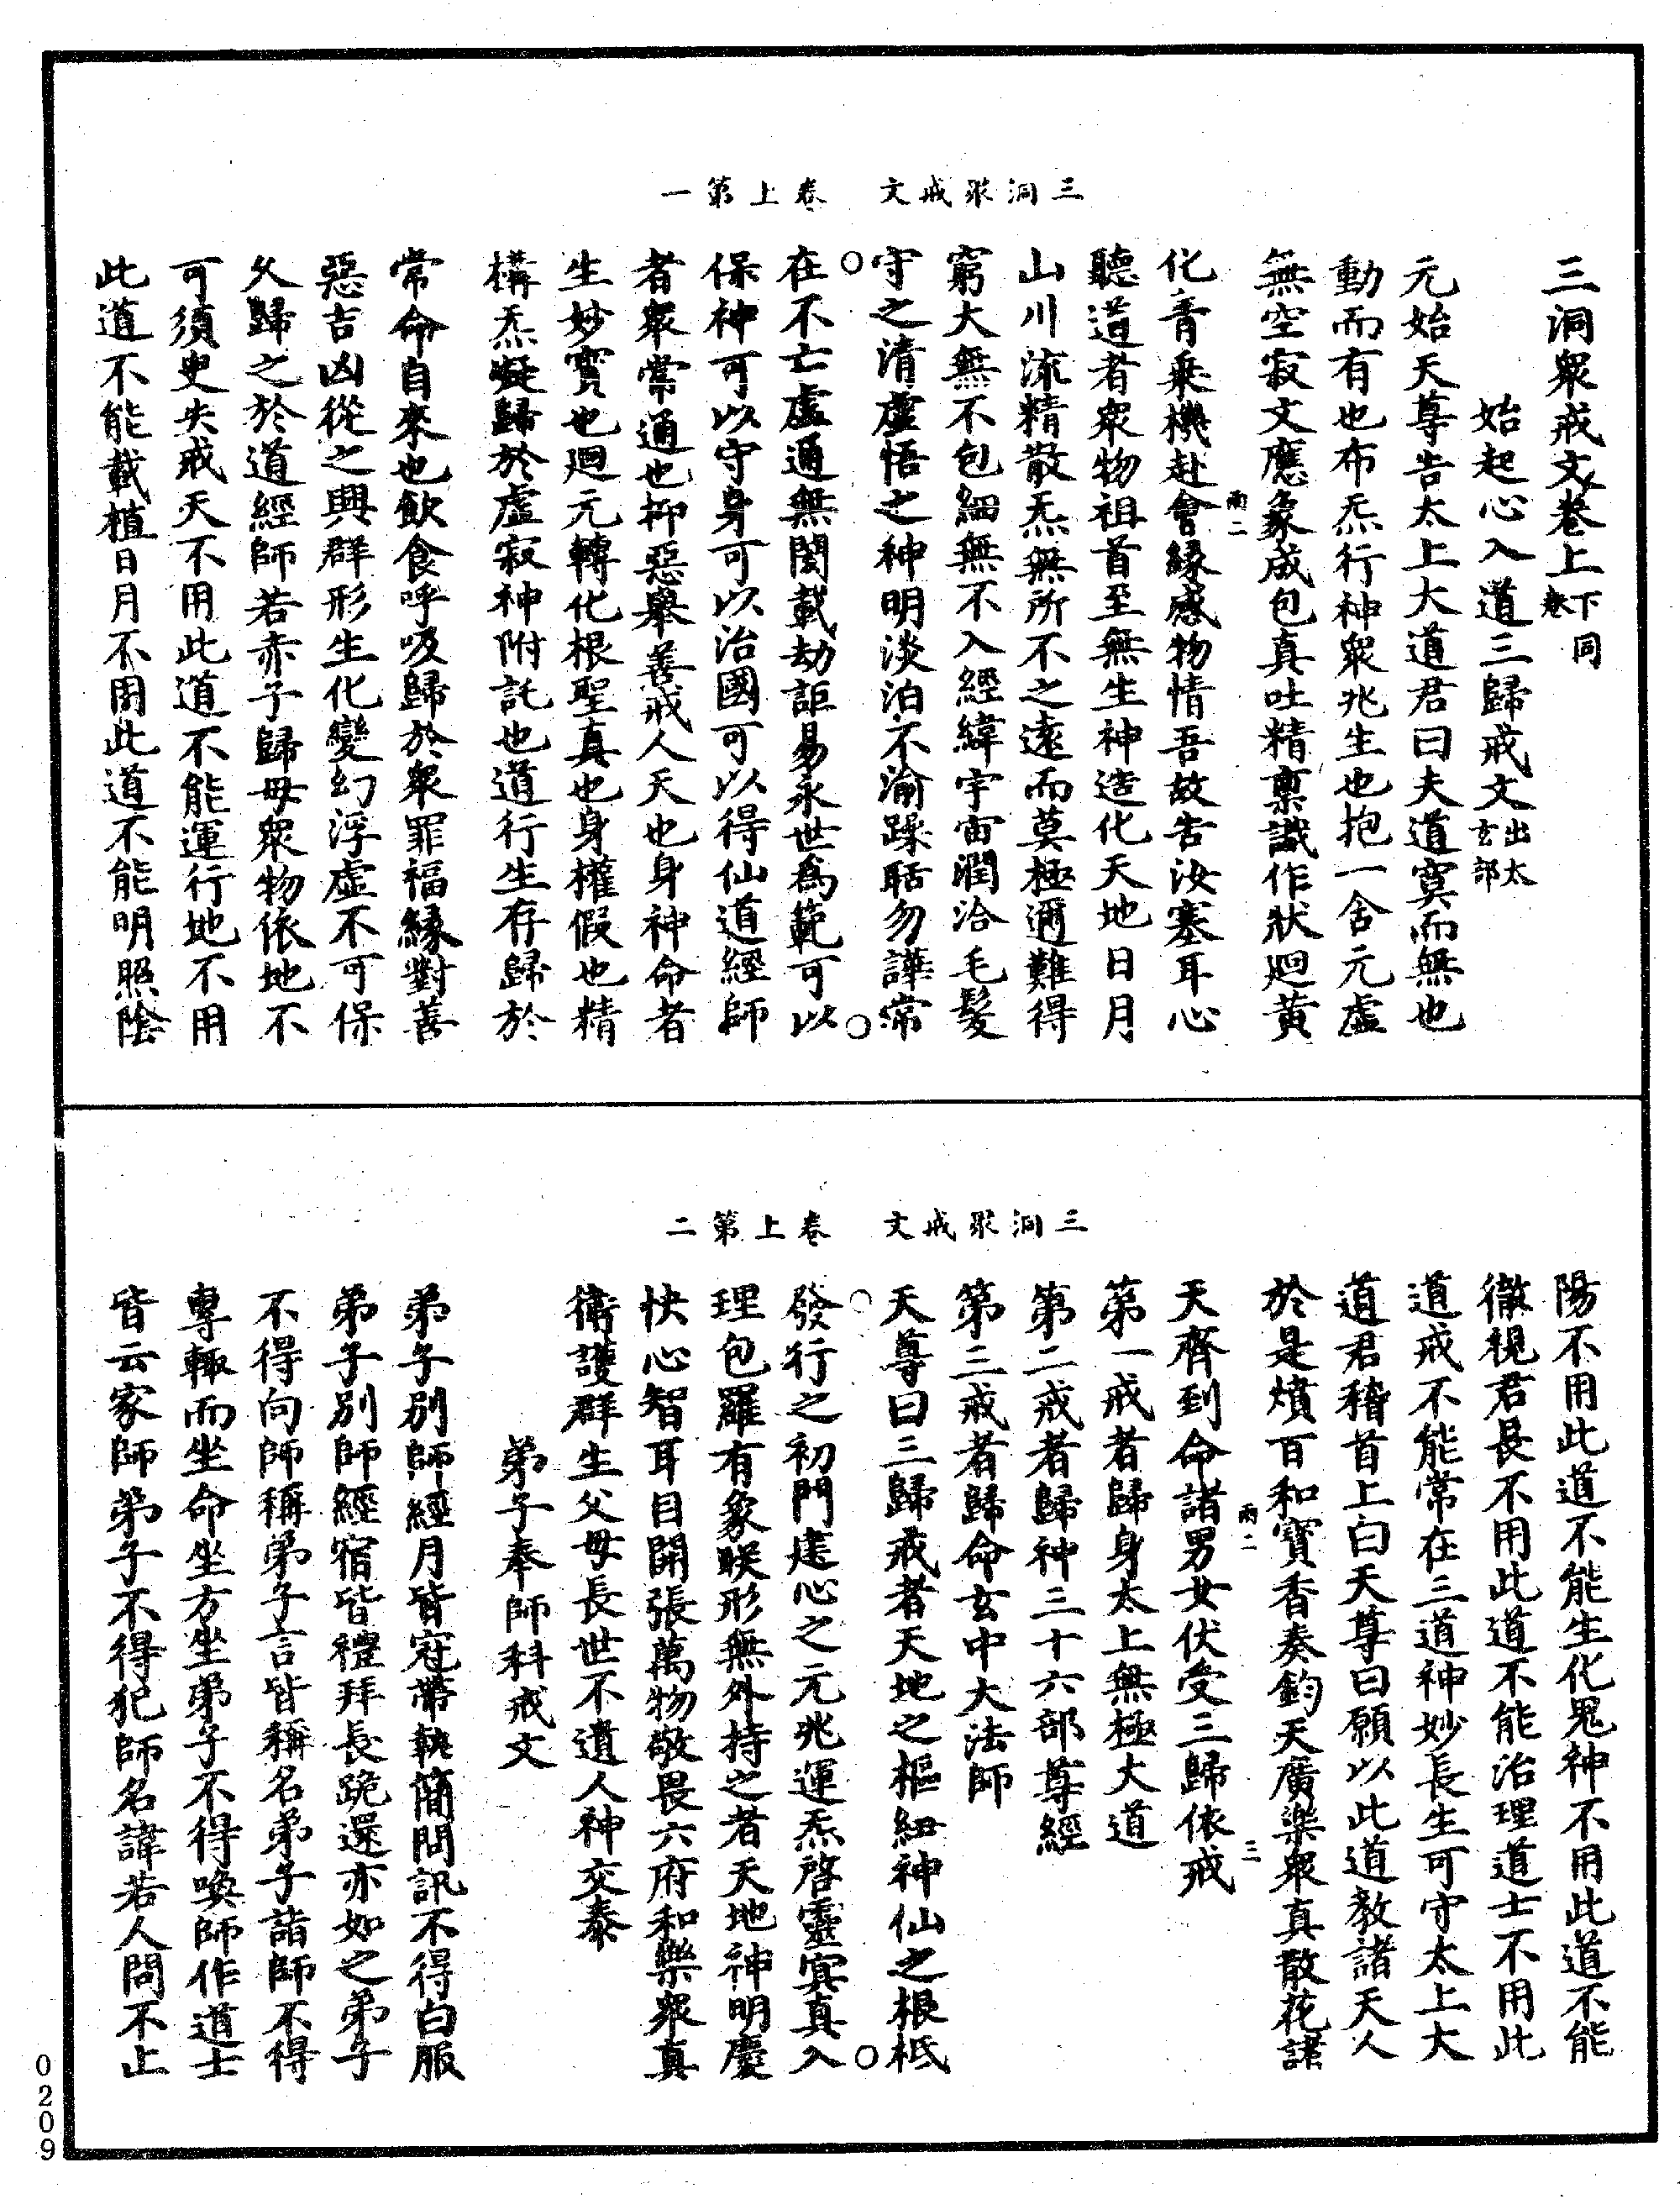 三洞衆戒文　卷上第一
三洞衆戒文卷上下卷同
始起心入道三歸戒文出太玄部
元始天尊告太上大道君曰夫道寞而無也
動而有也布炁行神衆兆生也抱一含元虛
無空寂文應象成包真吐精稟識作狀迴黃
雨二
化青乗機赴會緣感物情吾故告汝塞耳心
聽道者衆物祖首至無生神造化天地日月
山川流精散炁無所不之遠而莫極邇難得
窮大無不包細無不入經緯宇宙潤洽毛髮
守之清虛悟之神明淡泊不渝躁聒勿譁常
在不亡虛通無閡載劫詎易永世爲範可以
保神可以守身可以治國可以得仙道經師
者衆常通也抑惡舉善戒人天也身神命者
生妙寳也迴元轉化根聖真也身權假也精
構炁凝歸於虛寂神附託也道行生存歸於
常命自來也飲食呼吸歸於衆罪福緣對善
惡吉凶從之興群形生化變幻浮虛不可保
久歸之於道經師若赤子歸母衆物依地不
可須臾失戒天不用此道不能運行地不用
此道不能載植日月不用此道不能明照陰
三洞衆戒文　卷上第二
陽不用此道不能生化鬼神不用此道不能
徹視君長不用此道不能治理道士不用此
道戒不能常在三道神妙長生可守太上大
道君稽首上白天尊曰願以此道教諸天人
於是燌百和寳香奏鈞天廣樂衆真散花諸
雨二　三
天齊到命諸男女伏受三歸依戒
第一戒者歸身太上無極大道
第二戒者歸神三十六部尊經
第三戒者歸命玄中大法師
天尊曰三歸戒者天地之樞紐神仙之根柢
發行之初門建心之元兆運炁啓靈寞真入
理包羅有象眹形無外持之者天地神明慶
快心智耳目開張萬物敬畏六府和樂衆真
衛護群生父母長世不遺人神交泰
弟子奉師科戒文
弟子別師經月皆冠帶執簡問訊不得白服
弟子別師經宿皆禮拜長跪還亦如之弟子
不得向師稱弟子言皆稱名弟子詣師不得
專輙而坐命坐方坐弟子不得喚師作道士
皆云家師弟子不得犯師名諱若人問不止
0209